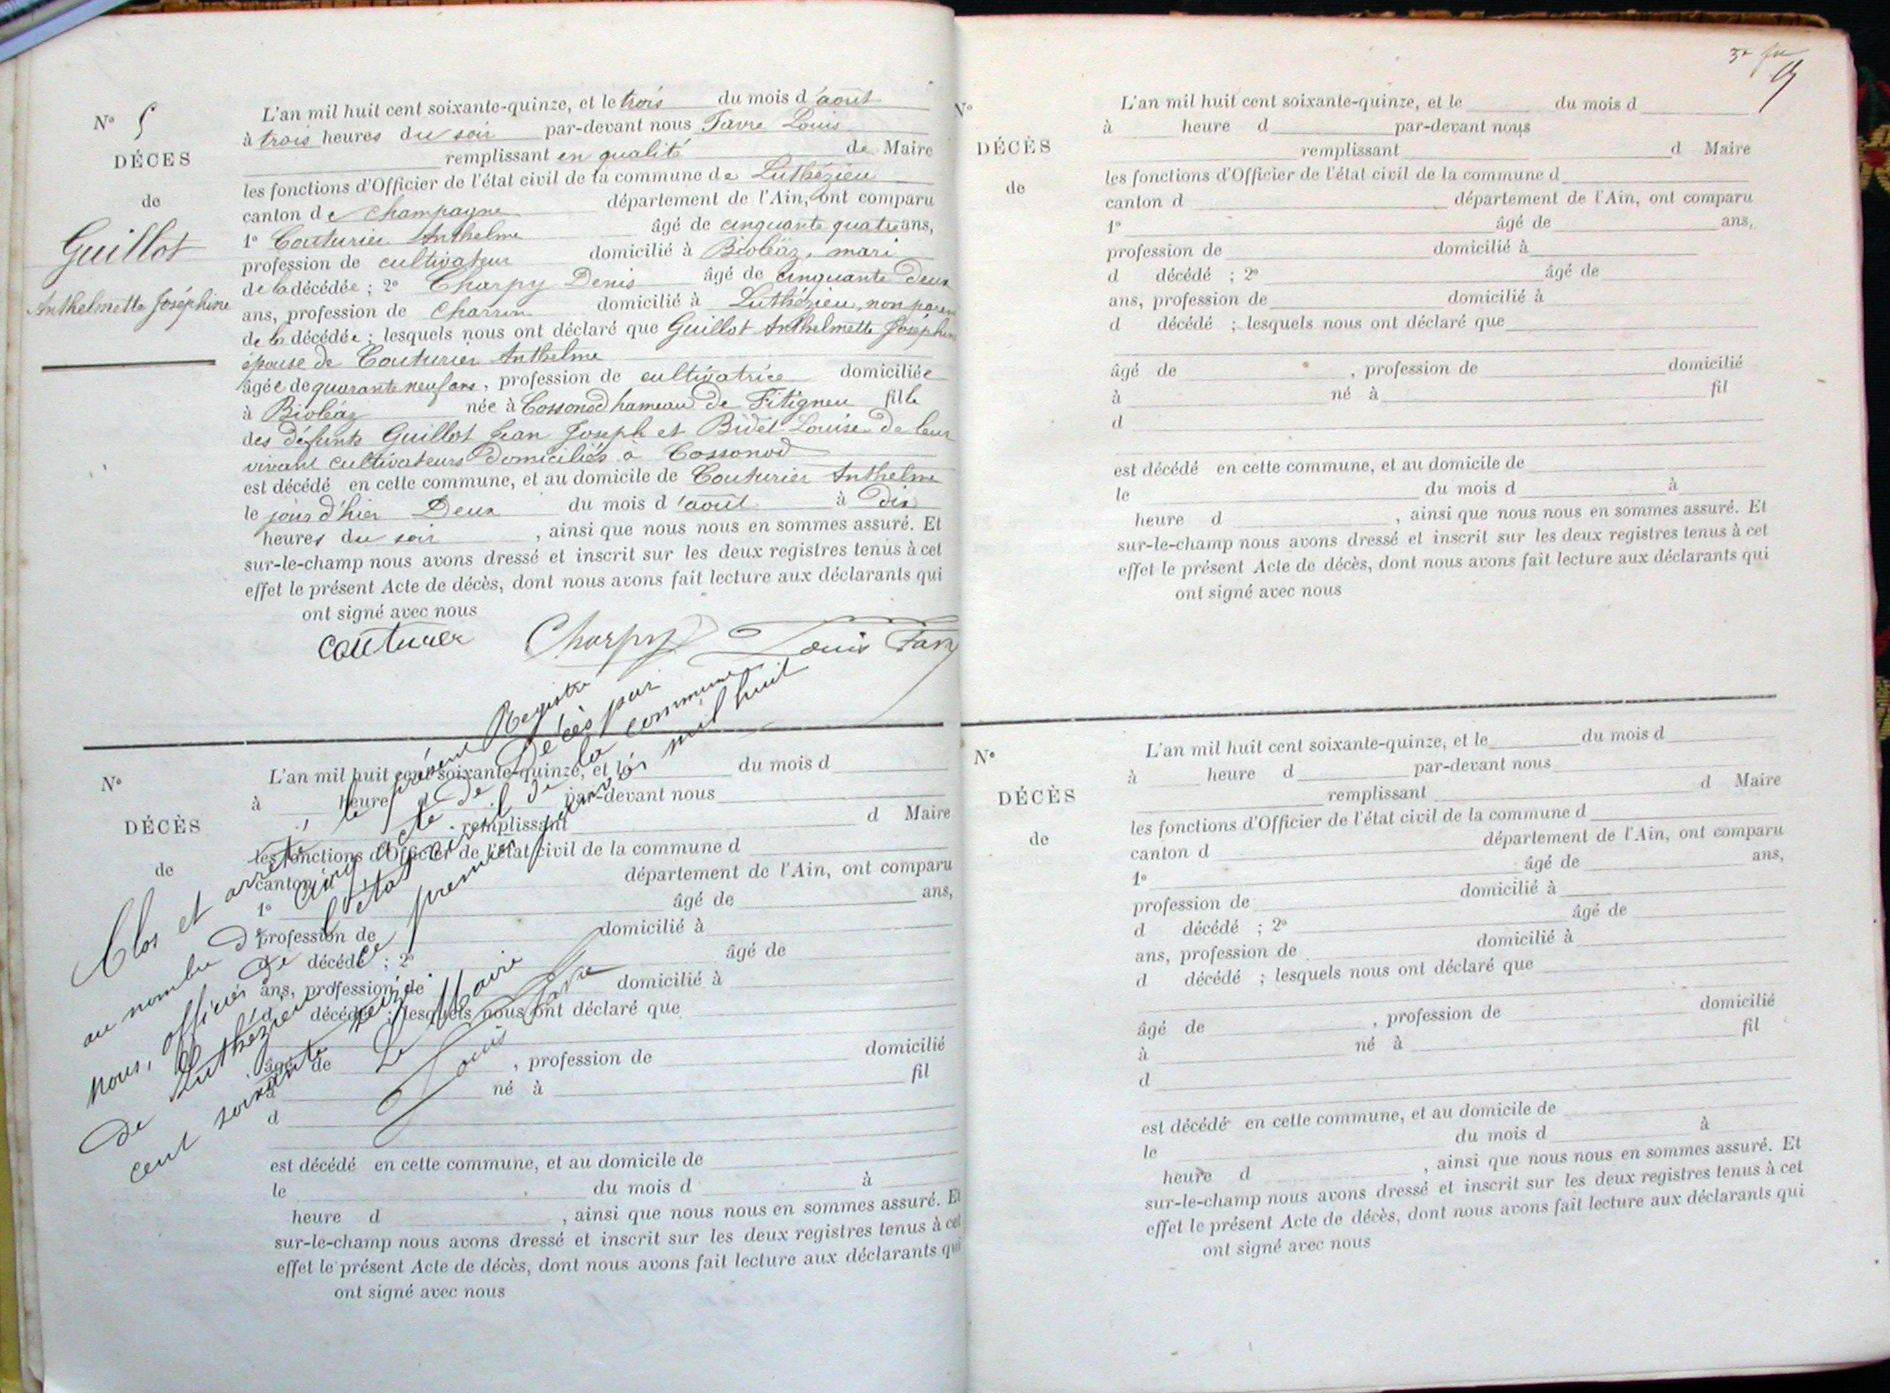 N° 5
DÉCES
de
Guillot
Anthelmette Joséphine
L'an mil huit cent soixante-quinze, et le trois du mois d'août
à trois heures du soir par-devant nous Favre Louis
remplissant en qualité de Maire
les fonctions d'Officier de l'état civil de la commune de Luthézieu
canton de Champagne département de l'Ain, ont comparu
1° Couturier Anthelme âgé de cinquante quatre ans,
profession de cultivateur domicilié à Bioléaz, mari
de la décédée ; 2° Charpy Denis âgé de cinquante deux
ans, profession de Charron domicilié à Luthézieu, non parent
de la décédée ; lesquels nous ont déclaré que Guillot Anthelmette Joséphine
épouse de Couturier Anthelme
âgée de quarante neuf ans, profession de cultivatrice domiciliée
à Bioléaz née à Cossonod hameau de Fitigneu fille
des défunts Guillot Jean Joseph et Bidet Louise de leur
vivant cultivateurs domiciliés à Cossonod
est décédé en cette commune, et au domicile de Couturier Anthelme
le jour d'hier Deux du mois d'août à Dix
heures du soir , ainsi que nous nous en sommes assuré. Et
sur-le-champ nous avons dressé et inscrit sur les deux registres tenus à cet
effet le présent Acte de décès, dont nous avons fait lecture aux déclarants qui
ont signé avec nous
couturier Charpy Louis Favre
N°
DÉCÈS
de
L'an mil huit cent soixante-quinze, et le du mois d
à heure d par-devant nous
remplissant d Maire
les fonctions d'Officier de l'état civil de la commune d
canton d département de l'Ain, ont comparu
1° âgé de ans,
profession de domicilié à
d décédé ; 2° âgé de
ans, profession de domicilié à
d décédé ; lesquels nous ont déclaré que
âgé de , profession de domicilié
à né à fil
d
est décédé en cette commune, et au domicile de
le du mois d à
heure d , ainsi que nous nous en sommes assuré. Et
sur-le-champ nous avons dressé et inscrit sur les deux registres tenus à cet
effet le présent Acte de décès, dont nous avons fait lecture aux déclarants qui
ont signé avec nous
Clos et arrêté, le présent Registre
au nombre de Cinq acte de Décès par
nous, officier de l'état civil de la commune
de Luthézieu ce premier janvier mil huit
cent soixante seize.
Le Maire
Louis Favre
N°
DÉCÈS
de
L'an mil huit cent soixante-quinze, et le du mois d
à heure d par-devant nous
remplissant d Maire
les fonctions d'Officier de l'état civil de la commune d
canton d département de l'Ain, ont comparu
1° âgé de ans,
profession de domicilié à
d décédé ; 2° âgé de
ans, profession de domicilié à
d décédé ; lesquels nous ont déclaré que
âgé de , profession de domicilié
à né à fil
d
est décédé en cette commune, et au domicile de
le du mois d à
heure d , ainsi que nous nous en sommes assuré. Et
sur-le-champ nous avons dressé et inscrit sur les deux registres tenus à cet
effet le présent Acte de décès, dont nous avons fait lecture aux déclarants qui
ont signé avec nous
N°
DÉCÈS
de
L'an mil huit cent soixante-quinze, et le du mois d
à heure d par-devant nous
remplissant d Maire
les fonctions d'Officier de l'état civil de la commune d
canton d département de l'Ain, ont comparu
1° âgé de ans,
profession de domicilié à
d décédé ; 2° âgé de
ans, profession de domicilié à
d décédé ; lesquels nous ont déclaré que
âgé de , profession de domicilié
à né à fil
d
est décédé en cette commune, et au domicile de
le du mois d à
heure d , ainsi que nous nous en sommes assuré. Et
sur-le-champ nous avons dressé et inscrit sur les deux registres tenus à cet
effet le présent Acte de décès, dont nous avons fait lecture aux déclarants qui
ont signé avec nous